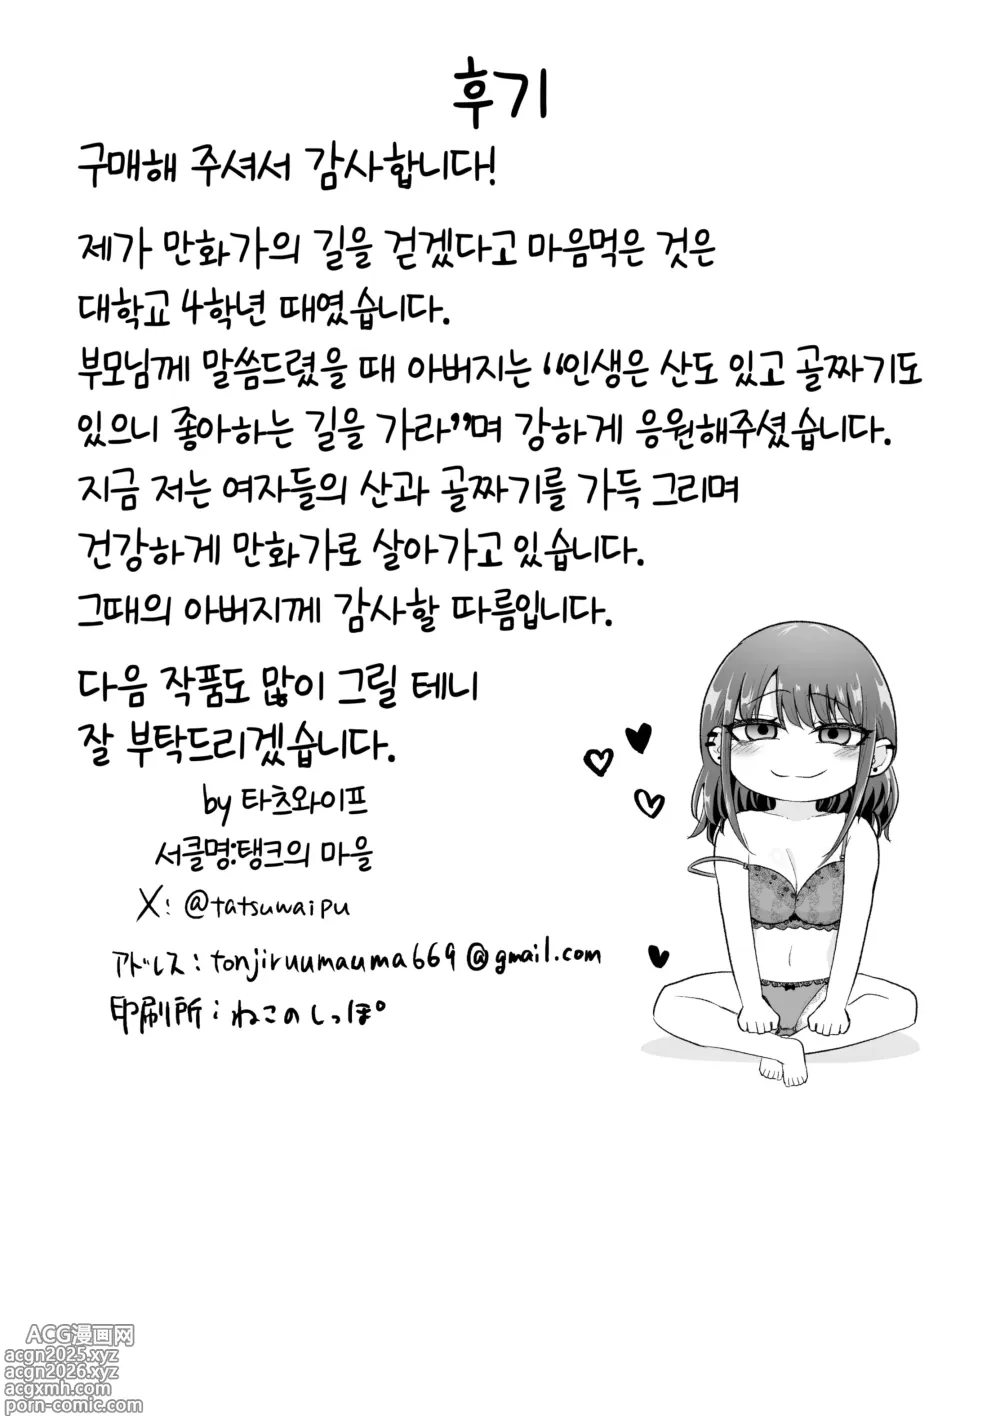 후기
구매해 주셔서 감사합니다!
제가 만화가의 길을 걷겠다고 마음먹은 것은
대학교 4학년 때였습니다.
부모님께 말씀드렸을 때 아버지는 “인생은 산도 있고 골짜기도
있으니 좋아하는 길을 가라”며 강하게 응원해주셨습니다.
지금 저는 여자들의 산과 골짜기를 가득 그리며
건강하게 만화가로 살아가고 있습니다.
그때의 아버지께 감사할 따름입니다.
다음 작품도 많이 그릴 테니
잘 부탁드리겠습니다.
by 타츠와이프
서클명:탱크의 마을
X: @tatsuwaipu
アドレス: tonjiruumauma669@gmail.com
印刷所:ねこのしっぽ
ACG漫画网
acgn2025.xyz
acgn2026.xyz
acgxmh.com
porn-comic.com